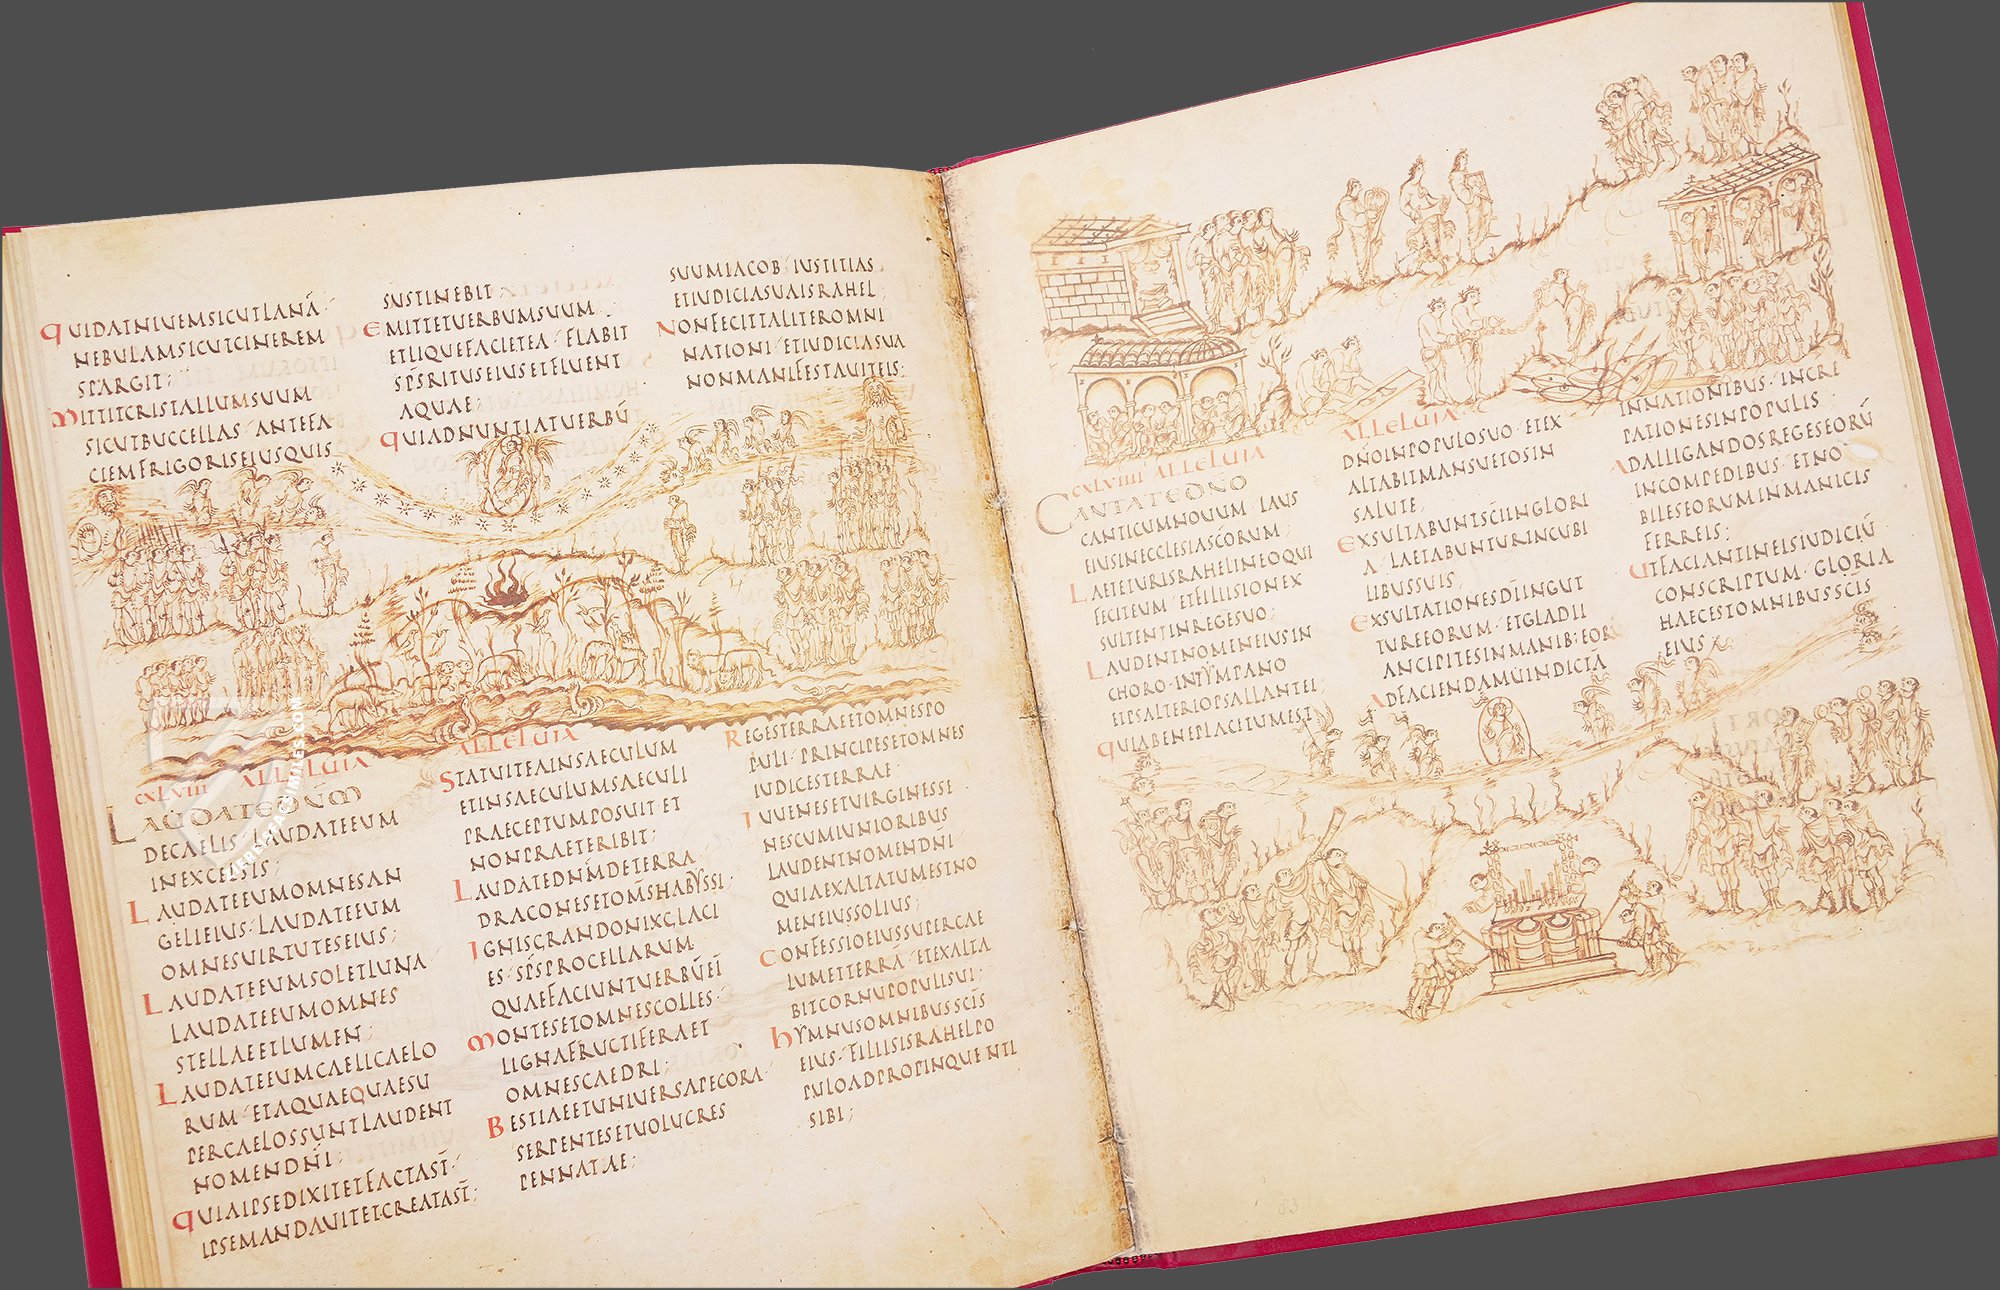 QUIDATNIUEMSICUTLANĀ·
NEBULAMSICUTCINEREM
SPARGIT;
MITTITCRISTALLUMSUUM
SICUTBUCCELLAS·ANTEFA
CIEMFRIGORISEIUSQUIS
SUSTINEBIT·
EMITTETUERBUMSUUM·
ETLIQUEFACIETEA·FLABIT
SP̄SRITUSEIUSETFLUENT
AQUAE;
QUIADNUNTIATUERBŪ
SUUMIACOB·IUSTITIAS
ETIUDICIASUAISRAHEL;
NONFECITTALITEROMNI
NATIONI·ETIUDICIASUA
NONMANIFESTAUITEIS·
CXLVIII ALLELUIA
LAUDATEDN̄M
DECAELIS·LAUDATEEUM
INEXCELSIS;
LAUDATEEUMOMNESAN
GELIEIUS·LAUDATEEUM
OMNESUIRTUTESEIUS;
LAUDATEEUMSOLETLUNA·
LAUDATEEUMOMNES
STELLAEETLUMEN;
LAUDATEEUMCAELICAELO
RUM·ETAQUAEQUAESU
PERCAELOSSUNTLAUDENT
NOMENDN̄I;
QUIAIPSEDIXITETFACTAST̄·
IPSEMANDAUITETCREATAST̄;
ALLELUIA
STATUITEAINSAECULUM
ETINSAECULUMSAECULI
PRAECEPTUMPOSUIT·ET
NONPRAETERIBIT;
LAUDATEDN̄MDETERRA·
DRACONESETOM̄SHABYSSI;
IGNISGRANDONIXGLACI
ES·SP̄SPROCELLARUM
QUAEFACIUNTUERBŪEĪ
MONTESETOMNESCOLLES·
LIGNAFRUCTIFERAET
OMNESCAEDRI;
BESTIAEETUNIUERSAPECORA·
SERPENTESETUOLUCRES
PENNATAE;
REGESTERRAEETOMNESPO
PULI·PRINCIPESETOMNES
IUDICESTERRAE·
IUUENESETUIRGINESSE
NESCUMIUNIORIBUS
LAUDENTNOMENDN̄I
QUIAEXALTATUMESTNO
MENEIUSSOLIUS;
CONFESSIOEIUSSUPERCAE
LUMETTERRA·ETEXALTA
BITCORNUPOPULISUI;
HYMNUSOMNIBUSSC̄IS
EIUS·FILIISISRAHELPO
PULOADPROPINQUENTI
SIBI;
CXLVIIII ALLELUIA
CANTATEDN̄O
CANTICUMNOUUM·LAUS
EIUSINECCLESIASC̄ORUM;
LAETETURISRAHELINEOQUI
FECITEUM·ETFILIISIONEX
SULTENTINREGESUO;
LAUDENTNOMENEIUSIN
CHORO·INTYMPANO
ETPSALTERIOPSALLANTEI;
QUIABENEPLACITUMEST
ALLELUIA·
DN̄OINPOPULOSUO·ETEX
ALTABITMANSUETOSIN
SALUTE·
EXSULTABUNTSC̄IINGLORI
A·LAETABUNTURINCUBI
LIBUSSUIS;
EXSULTATIONESDĪINGUT
TUREEORUM·ETGLADII
ANCIPITESINMANIB:EOR
ADFACIENDAMUINDICTĀ
INNATIONIBUS·INCRE
PATIONESINPOPULIS;
ADALLIGANDOSREGESEORŪ
INCOMPEDIBUS·ETNO
BILESEORUMINMANICIS
FERREIS;
UTFACIANTINEISIUDICIŪ
CONSCRIPTUM·GLORIA
HAECESTOMNIBUSSC̄IS
EIUS
83